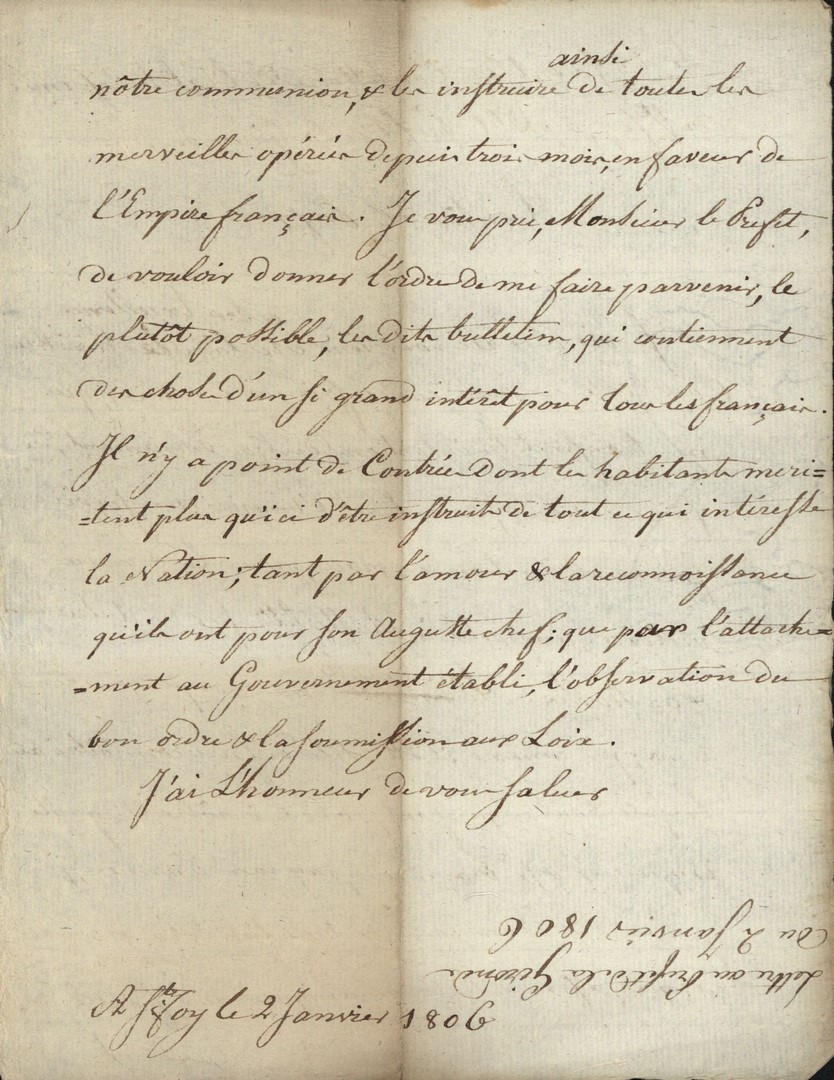 ainsi
nôtre communion, & les instruire de toutes les
merveilles opérées depuis trois mois, en faveur de
l'Empire français. Je vous prie, Monsieur le Prefet,
de vouloir donner l'ordre de me faire parvenir, le
plutôt possible, les dits bulletins, qui contiennent
des choses d'un si grand intérêt pour tous les français.
Il n'y a point de Contrées dont les habitants meri=
=tent plus qu'ici d'être instruits de tout ce qui intéresse
la Nation; tant par l'amour & la reconnoissance
qu'ils ont pour son Auguste chef; que par l'attache=
=ment au Gouvernement établi, l'observation du
bon ordre & la soumission aux Loix.
J'ai L'honneur de vous saluer
A Ste Foy le 2 Janvier 1806
Lettre au Prefet de la Gironde
du 2 Janvier 1806